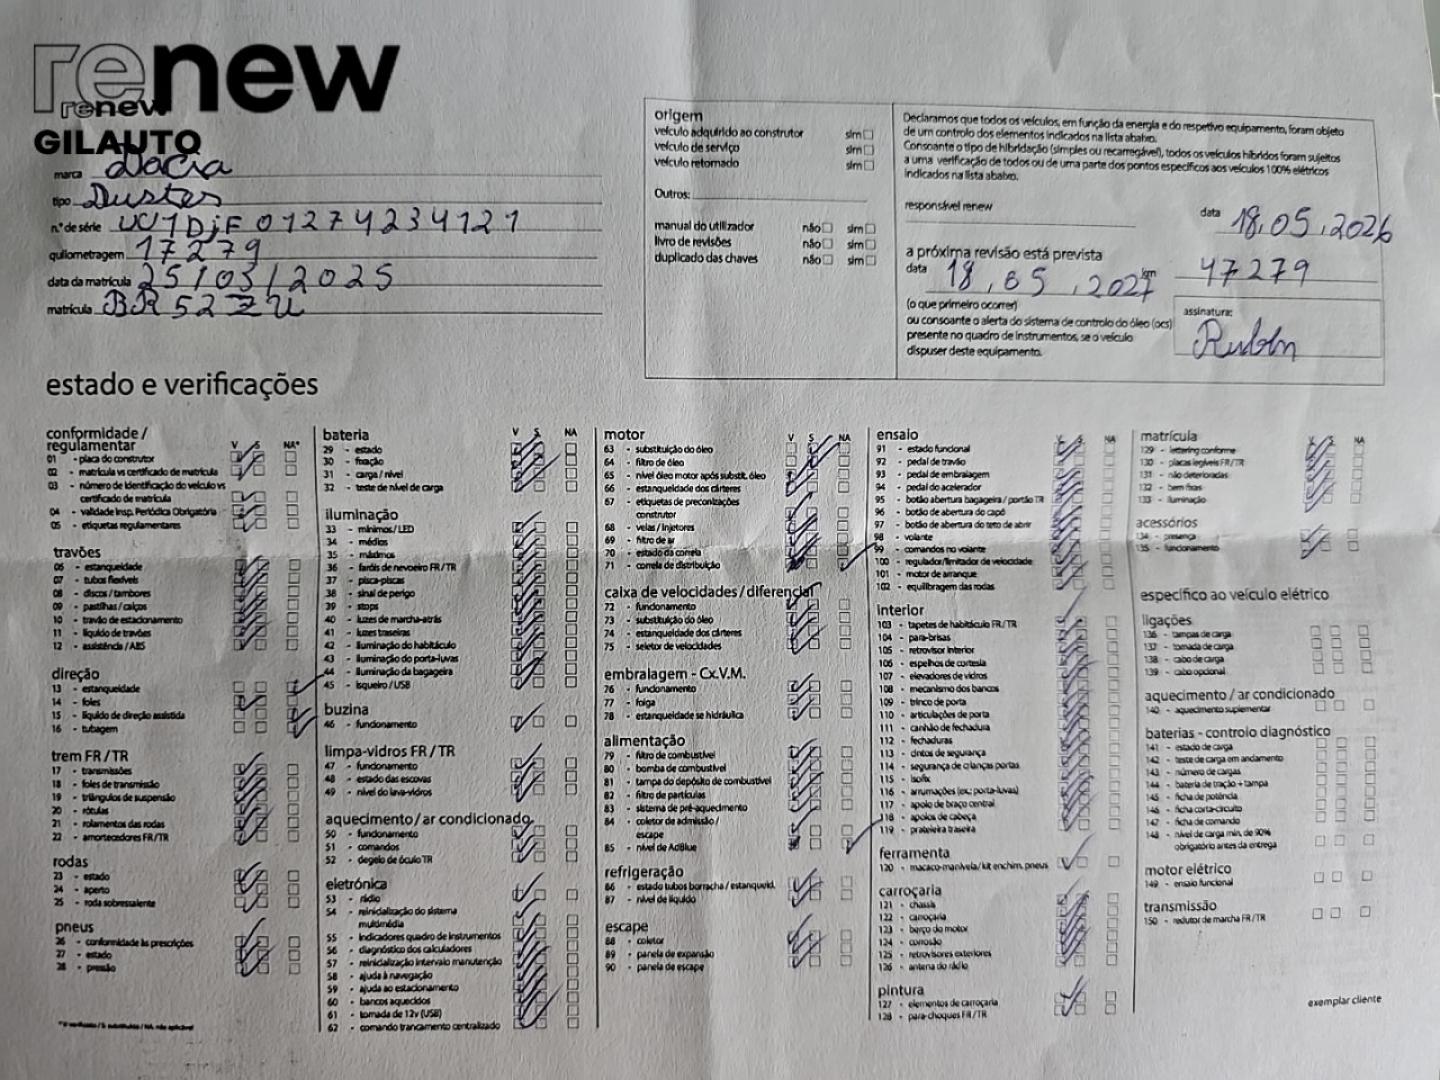 renew
renew
GILAUTO
marca Dacia
tipo Duster
n.º de série UU1DjF01274234121
quilometragem 17279
data da matrícula 25/03/2025
matrícula BR52ZU
origem
veículo adquirido ao construtor sim
veículo de serviço sim
veículo retomado sim
Outros:
manual do utilizador não sim
livro de revisões não sim
duplicado das chaves não sim
Declaramos que todos os veículos, em função da energia e do respetivo equipamento, foram objeto
de um controlo dos elementos indicados na lista abaixo.
Consoante o tipo de hibridação (simples ou recarregável), todos os veículos híbridos foram sujeitos
a uma verificação de todos ou de uma parte dos pontos específicos aos veículos 100% elétricos
indicados na lista abaixo.
responsável renew
data 18.05.2026
a próxima revisão está prevista
data 18.05.2027 km 47279
(o que primeiro ocorrer)
ou consoante o alerta do sistema de controlo do óleo (ocs)
presente no quadro de instrumentos, se o veículo
dispuser deste equipamento.
assinatura:
estado e verificações
conformidade /
regulamentar V S NA*
01 - placa do construtor
02 - matrícula vs certificado de matrícula
03 - número de identificação do veículo vs
certificado de matrícula
04 - validade Insp. Periódica Obrigatória
05 - etiquetas regulamentares
travões
06 - estanqueidade
07 - tubos flexíveis
08 - discos / tambores
09 - pastilhas / calços
10 - travão de estacionamento
11 - líquido de travões
12 - assistência / ABS
direção
13 - estanqueidade
14 - foles
15 - líquido de direção assistida
16 - tubagem
trem FR / TR
17 - transmissões
18 - foles de transmissão
19 - triângulos de suspensão
20 - rótulas
21 - rolamentos das rodas
22 - amortecedores FR / TR
rodas
23 - estado
24 - aperto
25 - roda sobressalente
pneus
26 - conformidade às prescrições
27 - estado
28 - pressão
* V verificado / S substituído / NA não aplicável
bateria V S NA
29 - estado
30 - fixação
31 - carga / nível
32 - teste de nível de carga
iluminação
33 - mínimos / LED
34 - médios
35 - máximos
36 - faróis de nevoeiro FR / TR
37 - pisca-piscas
38 - sinal de perigo
39 - stops
40 - luzes de marcha-atrás
41 - luzes traseiras
42 - iluminação do habitáculo
43 - iluminação do porta-luvas
44 - iluminação da bagageira
45 - isqueiro / USB
buzina
46 - funcionamento
limpa-vidros FR / TR
47 - funcionamento
48 - estado das escovas
49 - nível do lava-vidros
aquecimento / ar condicionado
50 - funcionamento
51 - comandos
52 - degelo de óculo TR
eletrónica
53 - rádio
54 - reinicialização do sistema
multimédia
55 - indicadores quadro de instrumentos
56 - diagnóstico dos calculadores
57 - reinicialização intervalo manutenção
58 - ajuda à navegação
59 - ajuda ao estacionamento
60 - bancos aquecidos
61 - tomada de 12v (USB)
62 - comando trancamento centralizado
motor V S NA
63 - substituição do óleo
64 - filtro de óleo
65 - nível óleo motor após substit. óleo
66 - estanqueidade dos cárteres
67 - etiquetas de preconizações
construtor
68 - velas / injetores
69 - filtro de ar
70 - estado da correia
71 - correia de distribuição
caixa de velocidades / diferencial
72 - funcionamento
73 - substituição do óleo
74 - estanqueidade dos cárteres
75 - seletor de velocidades
embralagem - Cx.V.M.
76 - funcionamento
77 - folga
78 - estanqueidade se hidráulica
alimentação
79 - filtro de combustível
80 - bomba de combustível
81 - tampa do depósito de combustível
82 - filtro de partículas
83 - sistema de pré-aquecimento
84 - coletor de admissão /
escape
85 - nível de AdBlue
refrigeração
86 - estado tubos borracha / estanqueid.
87 - nível de líquido
escape
88 - coletor
89 - panela de expansão
90 - panela de escape
ensaio V S NA
91 - estado funcional
92 - pedal de travão
93 - pedal de embraiagem
94 - pedal do acelerador
95 - botão abertura bagageira / portão TR
96 - botão de abertura do capô
97 - botão de abertura do teto de abrir
98 - volante
99 - comandos no volante
100 - regulador/limitador de velocidade
101 - motor de arranque
102 - equilibragem das rodas
interior
103 - tapetes de habitáculo FR / TR
104 - para-brisas
105 - retrovisor interior
106 - espelhos de cortesia
107 - elevadores de vidros
108 - mecanismo dos bancos
109 - trinco de porta
110 - articulações de porta
111 - canhão de fechadura
112 - fechaduras
113 - cintos de segurança
114 - segurança de crianças portas
115 - isofix
116 - arrumações (ex.: porta-luvas)
117 - apoio de braço central
118 - apoios de cabeça
119 - prateleira traseira
ferramenta
120 - macaco-manivela / kit enchim. pneus
carroçaria
121 - chassis
122 - carroçaria
123 - berço do motor
124 - corrosão
125 - retrovisores exteriores
126 - antena do rádio
pintura
127 - elementos de carroçaria
128 - para-choques FR / TR
matrícula V S NA
129 - lettering conforme
130 - placas legíveis FR / TR
131 - não deterioradas
132 - bem fixas
133 - iluminação
acessórios
134 - presença
135 - funcionamento
específico ao veículo elétrico
ligações
136 - tampas de carga
137 - tomada de carga
138 - cabo de carga
139 - cabo opcional
aquecimento / ar condicionado
140 - aquecimento suplementar
baterias - controlo diagnóstico
141 - estado de carga
142 - teste de carga em andamento
143 - número de cargas
144 - bateria de tração + tampa
145 - ficha de potência
146 - ficha corta-circuito
147 - ficha de comando
148 - nível de carga mín. de 90%
obrigatório antes da entrega
motor elétrico
149 - ensaio funcional
transmissão
150 - redutor de marcha FR / TR
exemplar cliente